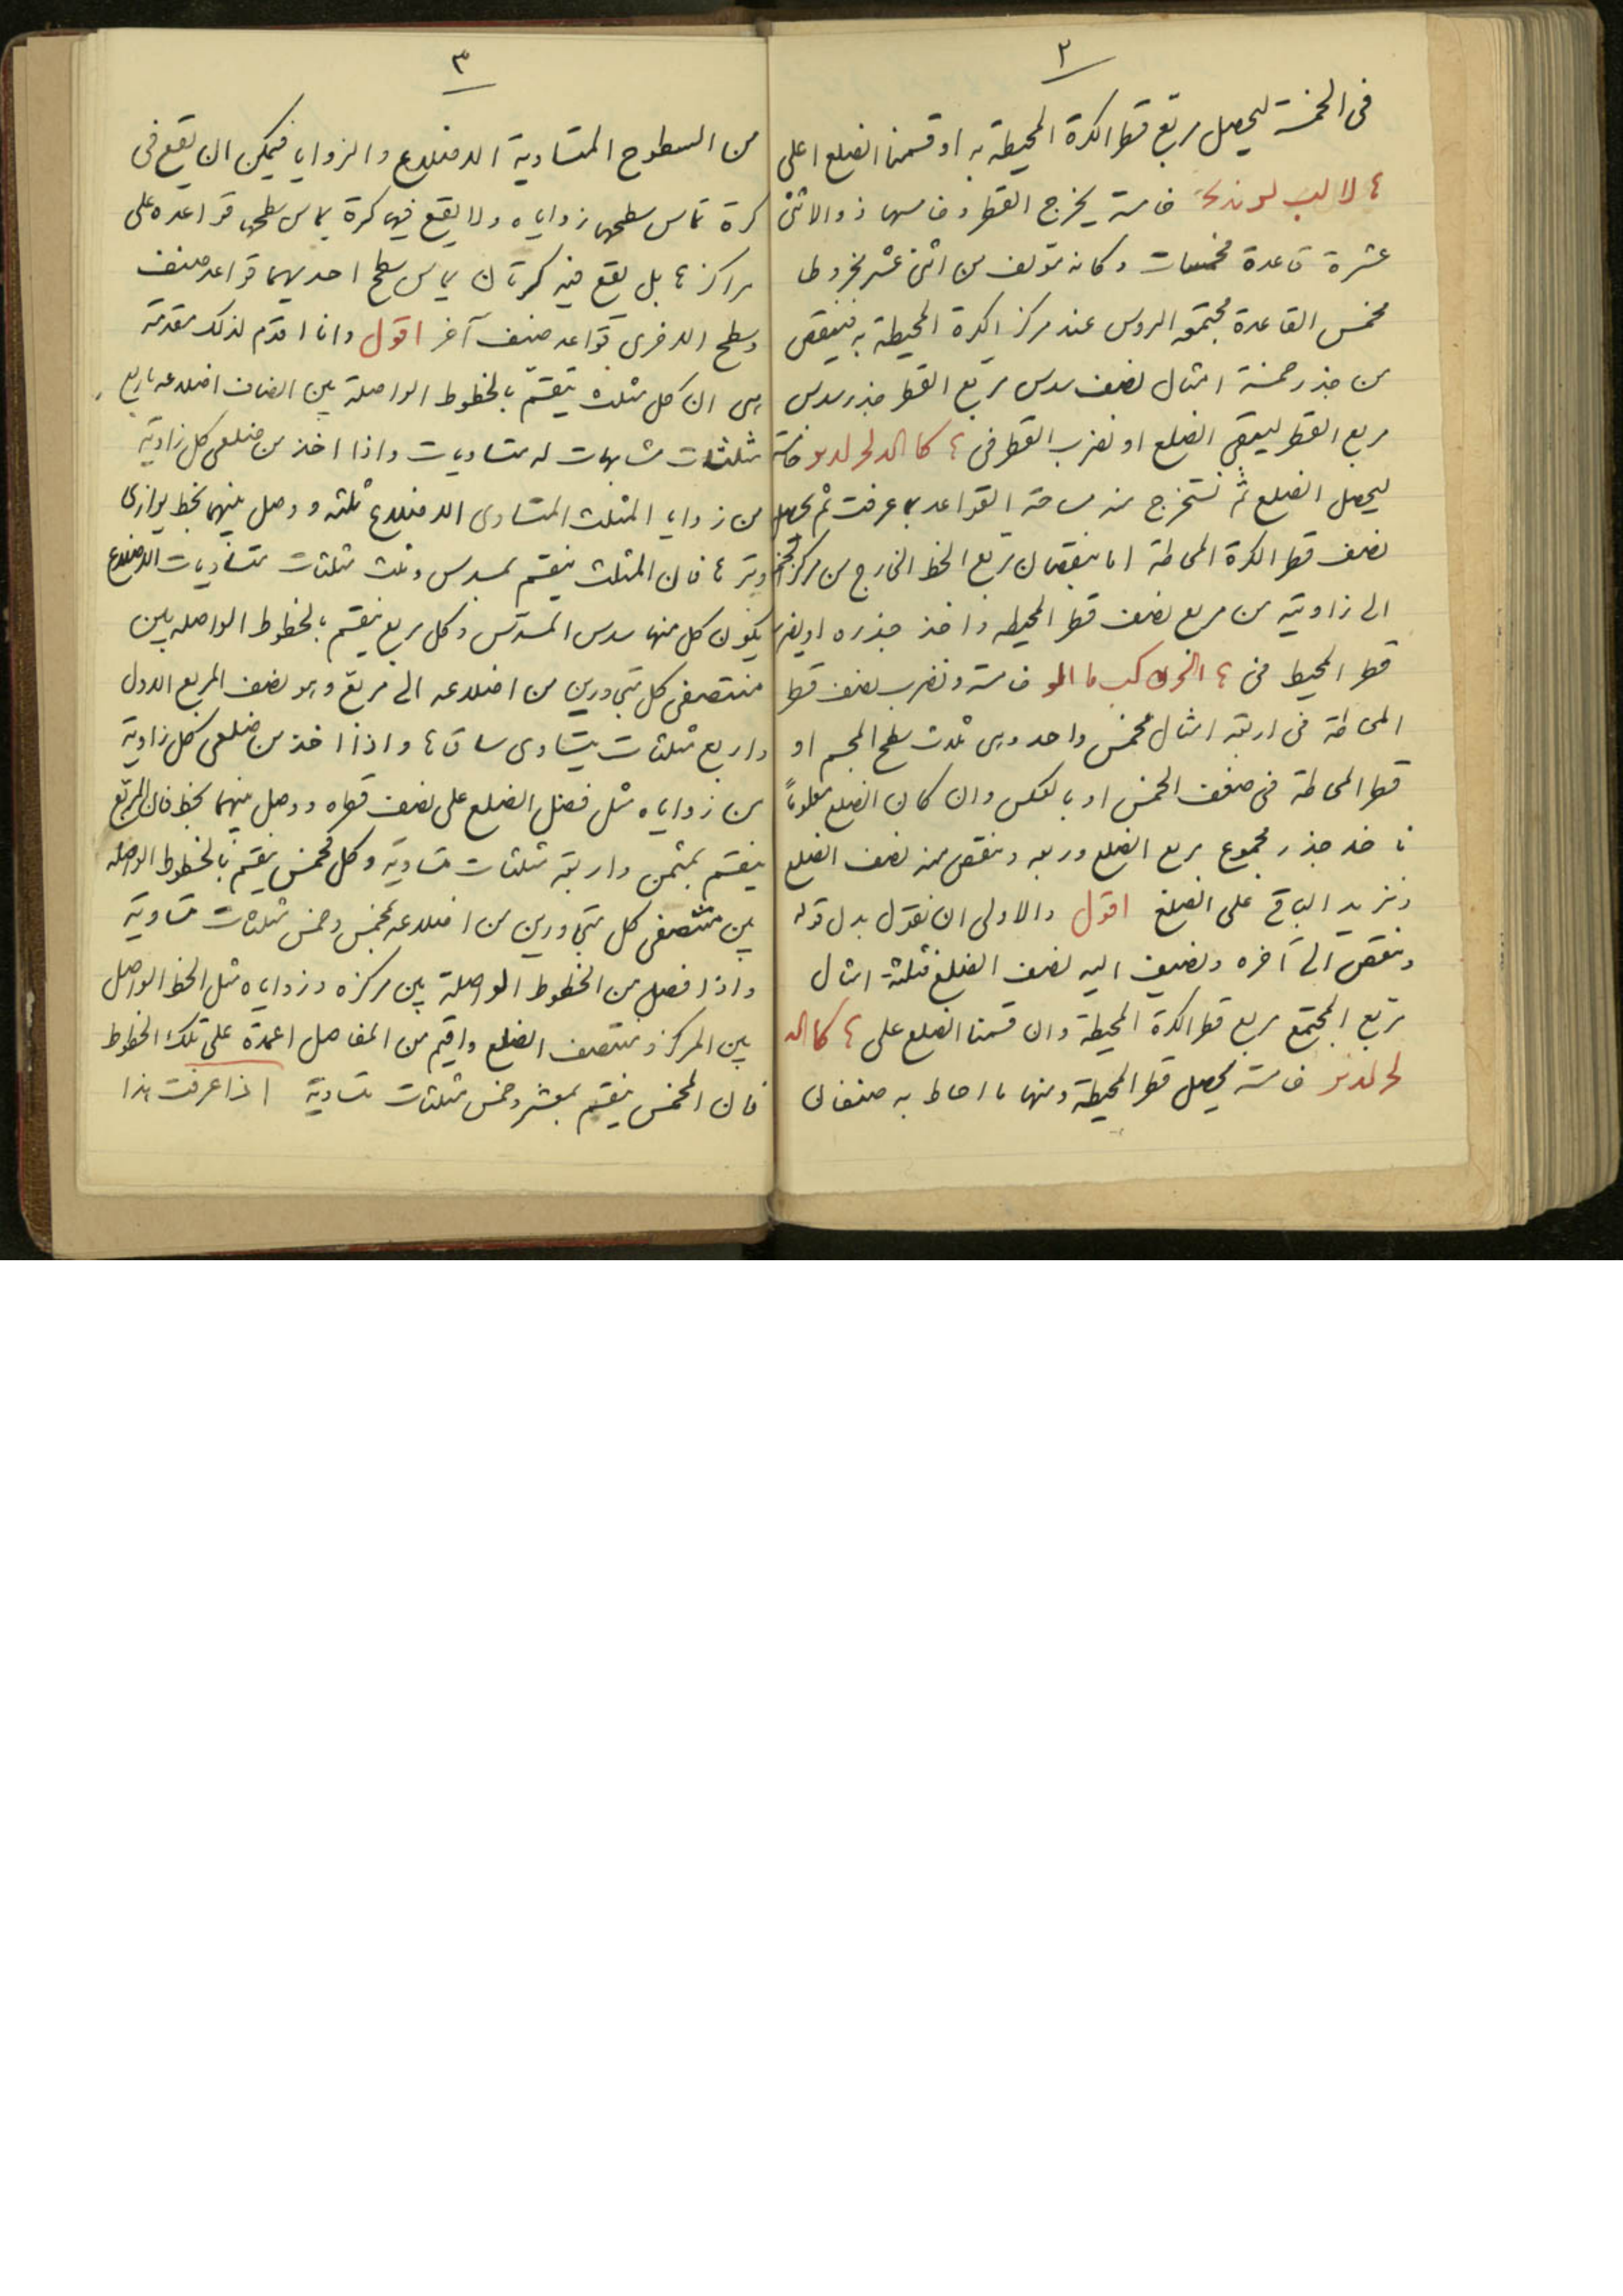 ٢
فى الخمسة ليحصل مربع قطر الكرة المحيطة به او قسمنا الضلع اعلى
خامسة يخرج القطر وخامسها ذو الاثنتى
عشرة قاعدة مخمسات وكانه تولف من اثنى عشر مخروطا
مخمس القاعدة مجتمعه الروس عند مركز الكرة المحيطة به فينقص
من جذر خمسة امثال نصف سدس مربع القطر جذر سدس
مربع القطر ليبقى الضلع او نضرب القطر فى ء كا الد لح لد نو خامسة
ليحصل الضلع ثم نستخرج منه مساحة القواعد بما عرفت ثم يحصل
نصف قطر الكرة المحاطة اما بنقصان مربع الخط الخارج من مركز المخمس
الى زاويته من مربع نصف قطر المحيطه واخذ جذره او بضرب
قطر المحيط فى ء خامسة ونضرب نصف قطر
المحاطة فى اربعة امثال مخمس واحد وهى ثلث سطح المجسم او
قطر المحاطة فى ضعف المخمس او بالعكس وان كان الضلع معلوماً
ناخذ جذر مجموع مربع الضلع وربعه وننقص منه نصف الضلع
ونزيد الباقى على الضلع اقول والاولى ان نقول بدل قوله
وننقص الى آخره ونضيف اليه نصف الضلع فثلثة امثال
مربع المجتمع مربع قطر الكرة المحيطة وان قسمنا الضلع على ء كا الد
لح لد نو خامسة يحصل قطر المحيطة ومنها ما احاط به صنفان
٣
من السطوح المتساوية الاضلاع والزوايا فيمكن ان يقع فى
كرة تماس سطحها زواياه ولا يقع فيها كرة يماس سطحها قواعده على
مراكزها بل يقع فيه كرتان يماس سطح احديهما قواعد صنف
وسطح الاخرى قواعد صنف آخر اقول وانا اقدم لذلك مقدمة
هى ان كل مثلث ينقسم بالخطوط الواصلة بين انصاف اضلاعه باربع
مثلثات مشابهات له متساويات واذا اخذ من ضلعى كل زاوية
من زوايا المثلث المتساوى الاضلاع ثلثه ووصل بينهما بخط يوازى
وترها فان المثلث ينقسم بمسدس وثلث مثلثات متساويات الاضلاع
يكون كل منها سدس المسدس وكل مربع ينقسم بالخطوط الواصله بين
منتصفى كل متجاورين من اضلاعه الى مربع وهو نصف المربع الاول
واربع مثلثات يتساوى ساقاها واذا اخذ من ضلعى كل زاوية
من زواياه مثل فضل الضلع على نصف قطره ووصل بينهما بخط فان المربع
ينقسم بمثمن واربعة مثلثات متساوية وكل مخمس ينقسم بالخطوط الواصله
بين منتصفى كل متجاورين من اضلاعه بمخمس وخمس مثلثات متساوية
واذا فصل من الخطوط الواصلة بين مركزه وزواياه مثل الخط الواصل
بين المركز ومنتصف الضلع واقيم من المفاصل اعمدة على تلك الخطوط
فان المخمس ينقسم بمعشر وخمس مثلثات متساوية اذا عرفت هذا